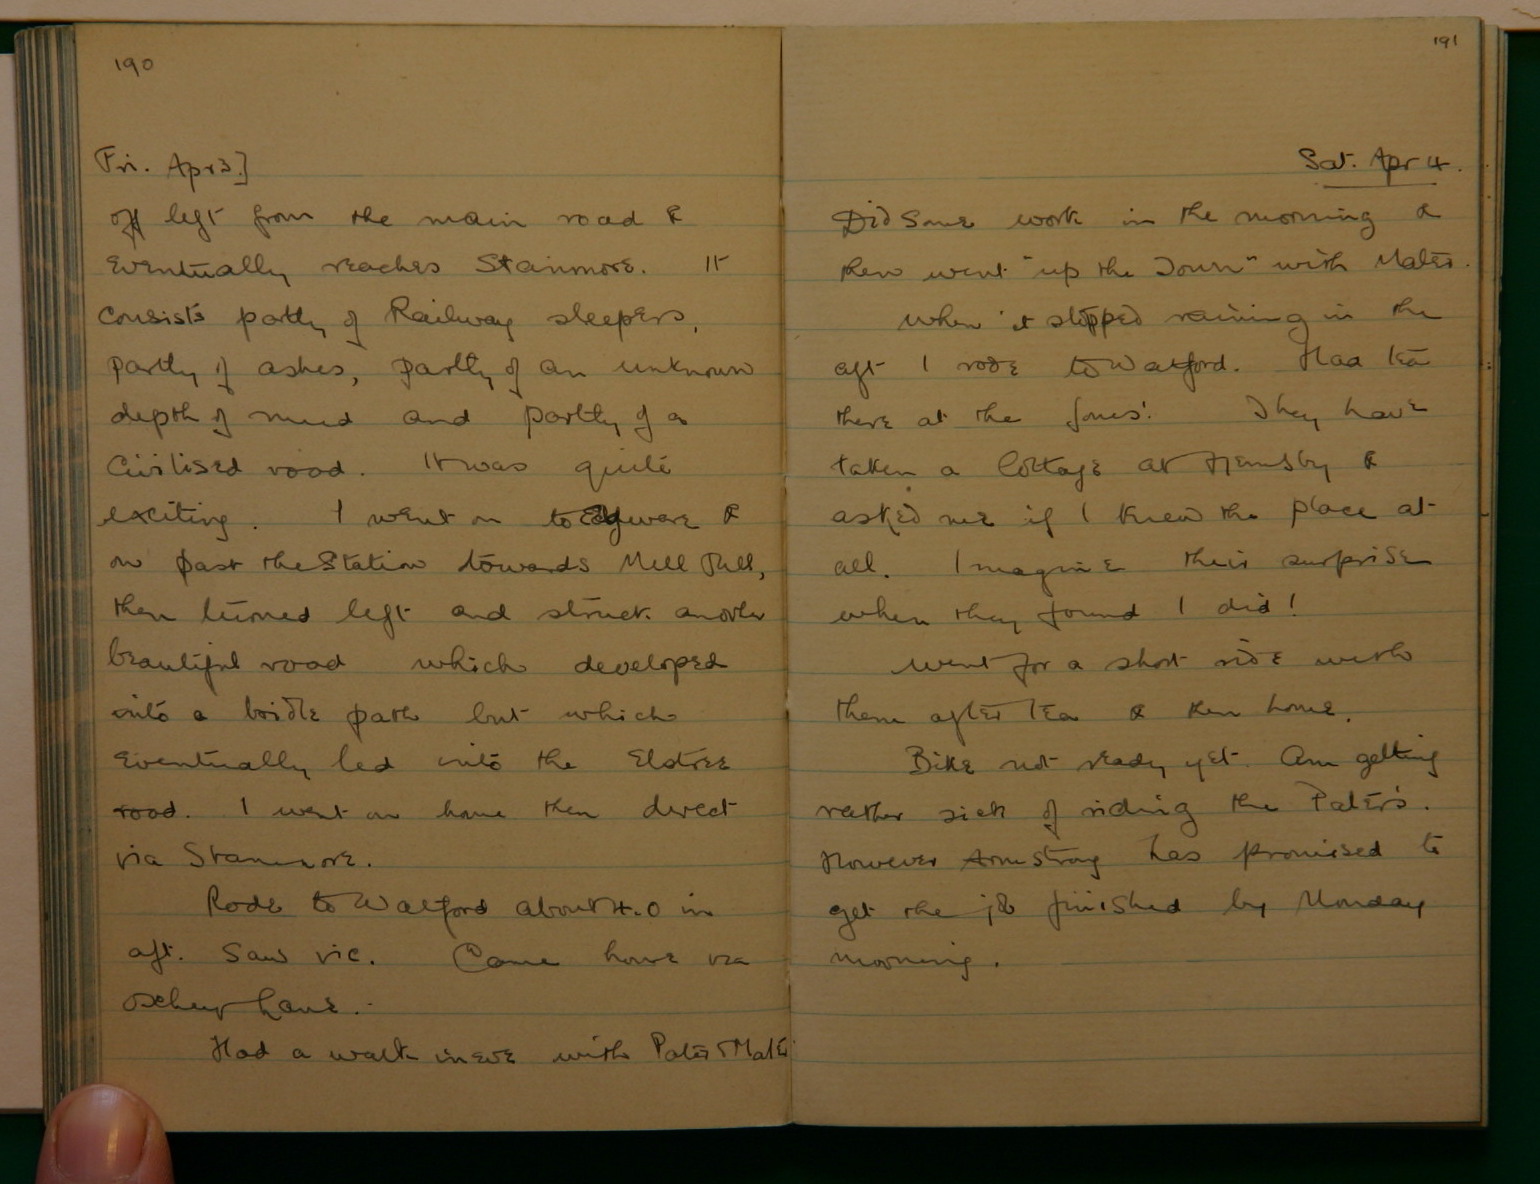 190
Fri. Apr 3.]
off left from the main road &
eventually reaches Stanmore. It
consists partly of Railway sleepers,
partly of ashes, partly of an unknown
depth of mud and partly of a
civilised road. It was quite
exciting. I went on to Edgware &
on past the Station towards Mill Hill,
then turned left and struck another
beautiful road which developed
into a bridle path but which
eventually led into the Elstree
road. I went on home then direct
via Stanmore.
Rode to Watford about 4.0 in
aft. Saw Vic. Came home via
Oxhey Lane.
Had a walk in eve with Pater & Mater
191
Sat. Apr 4.
Did some work in the morning &
then went "up the Town" with Mater.
When it stopped raining in the
aft I rode to Watford. Had tea
there at the Jones'. They have
taken a Cottage at Hemsby &
asked me if I knew the place at
all. Imagine their surprise
when they found I did!
Went for a short ride with
them after tea & then home.
Bike not ready yet. Am getting
rather sick of riding the Pater's.
However Armstrong has promised to
get the job finished by Monday
morning.